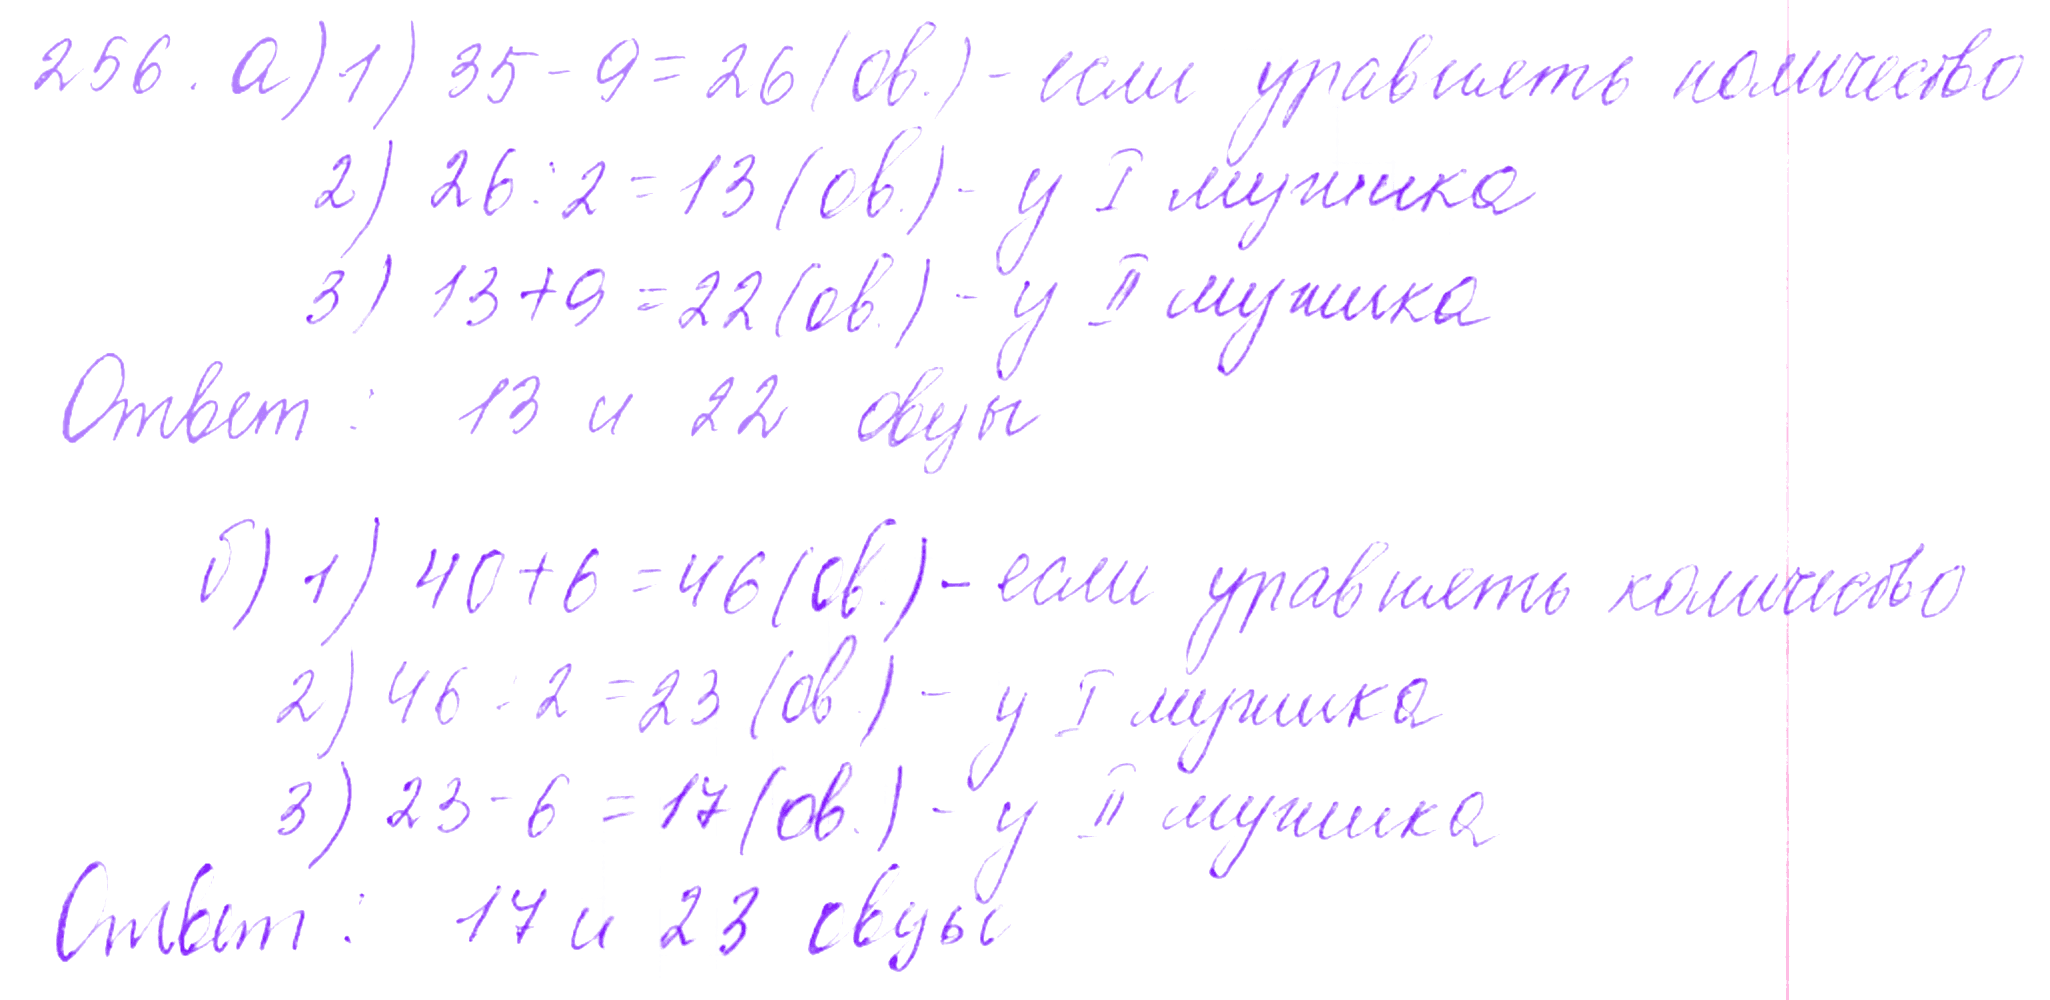 256. а) 1) 35 - 9 = 26 (ов.) - если уравнять количество
2) 26 : 2 = 13 (ов.) - у I мужика
3) 13 + 9 = 22 (ов.) - у II мужика
Ответ : 13 и 22 овцы
б) 1) 40 + 6 = 46 (ов.) - если уравнять количество
2) 46 : 2 = 23 (ов.) - у I мужика
3) 23 - 6 = 17 (ов.) - у II мужика
Ответ : 17 и 23 овцы